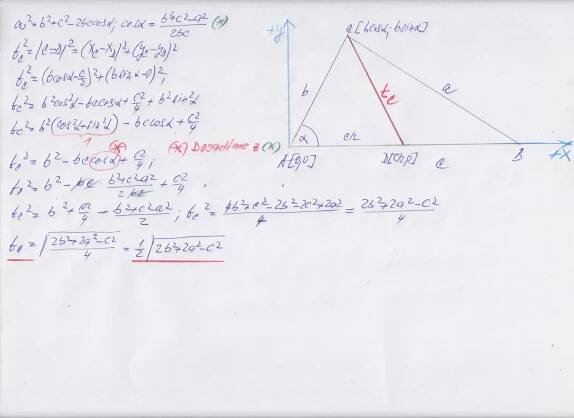 a² = b²+c²-2bccosα; cosα = b²+c²-a²/2bc (x)
tc² = |C-D|² = (xc-xD)²+(yc-yD)²
tc² = (bcosα-c/2)²+(bsinα-0)²;
tc² = b²cos²α-bccosα+c²/4+b²sin²α
tc² = b²(cos²α+sin²α) - bccosα+c²/4
1
(x)
(x) Dosadíme z (x)
tc² = b² - bccosα+c²/4;
tc² = b² - bc · b²+c²-a²/2bc + c²/4
tc² = b²+c²/4 - b²+c²-a²/2; tc² = 4b²+c²-2b²-2c²+2a²/4 = 2b²+2a²-c²/4
tc = √2b²+2a²-c²/4 = 1/2 √2b²+2a²-c²
+y
C[bcosα; bsinα]
b
tc
a
α
c/2
A[0;0]
c
B
+x